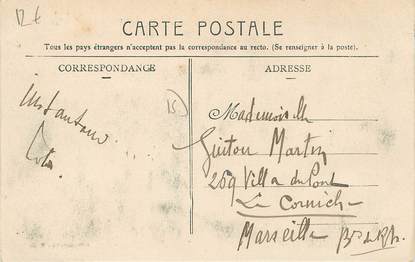 12 €
CARTE POSTALE
Tous les pays étrangers n'acceptent pas la correspondance au recto. (Se renseigner à la poste).
CORRESPONDANCE
ADRESSE
15
Mademoiselle
Guiton Martin
269 Villa du Pont
La Cornich
Marseille B. du Rh.